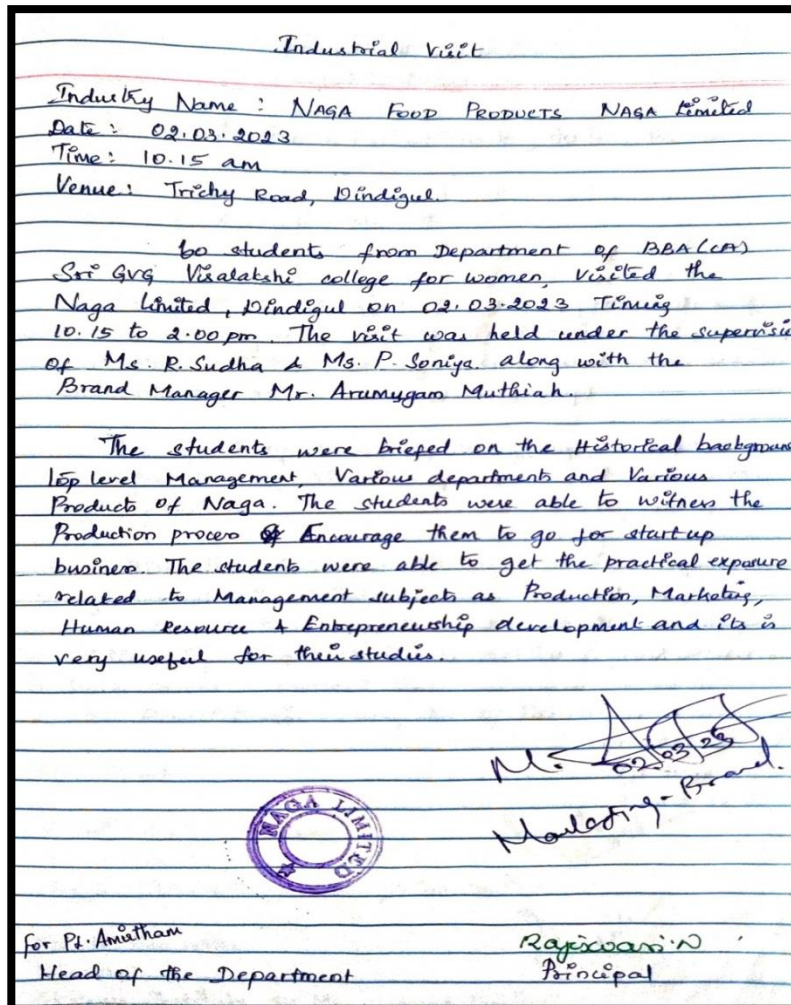 Industrial Visit
Industry Name : NAGA FOOD PRODUCTS NAGA Limited
Date : 02.03.2023
Time : 10.15 am
Venue : Trichy Road, Dindigul.
60 students from Department of BBA(CA)
Sri GVG Visalakshi college for women, visited the
Naga Limited, Dindigul on 02.03.2023 Timing
10.15 to 2.00 pm. The visit was held under the supervisi
of Ms. R. Sudha & Ms. P. Soniya along with the
Brand Manager Mr. Arumugam Muthiah.
The students were briefed on the Historical background
Top level Management, Various departments and Various
Products of Naga. The students were able to witness the
Production process & Encourage them to go for start up
business. The students were able to get the practical exposure
related to Management subjects as Production, Marketing,
Human Resource & Entrepreneurship development and its is
very useful for their studies.
M.
02.03.23
Marketing - Brand.
NAGA LIMITED
for Pt. Amirtham
Head of the Department
Rajeswari.N
Principal